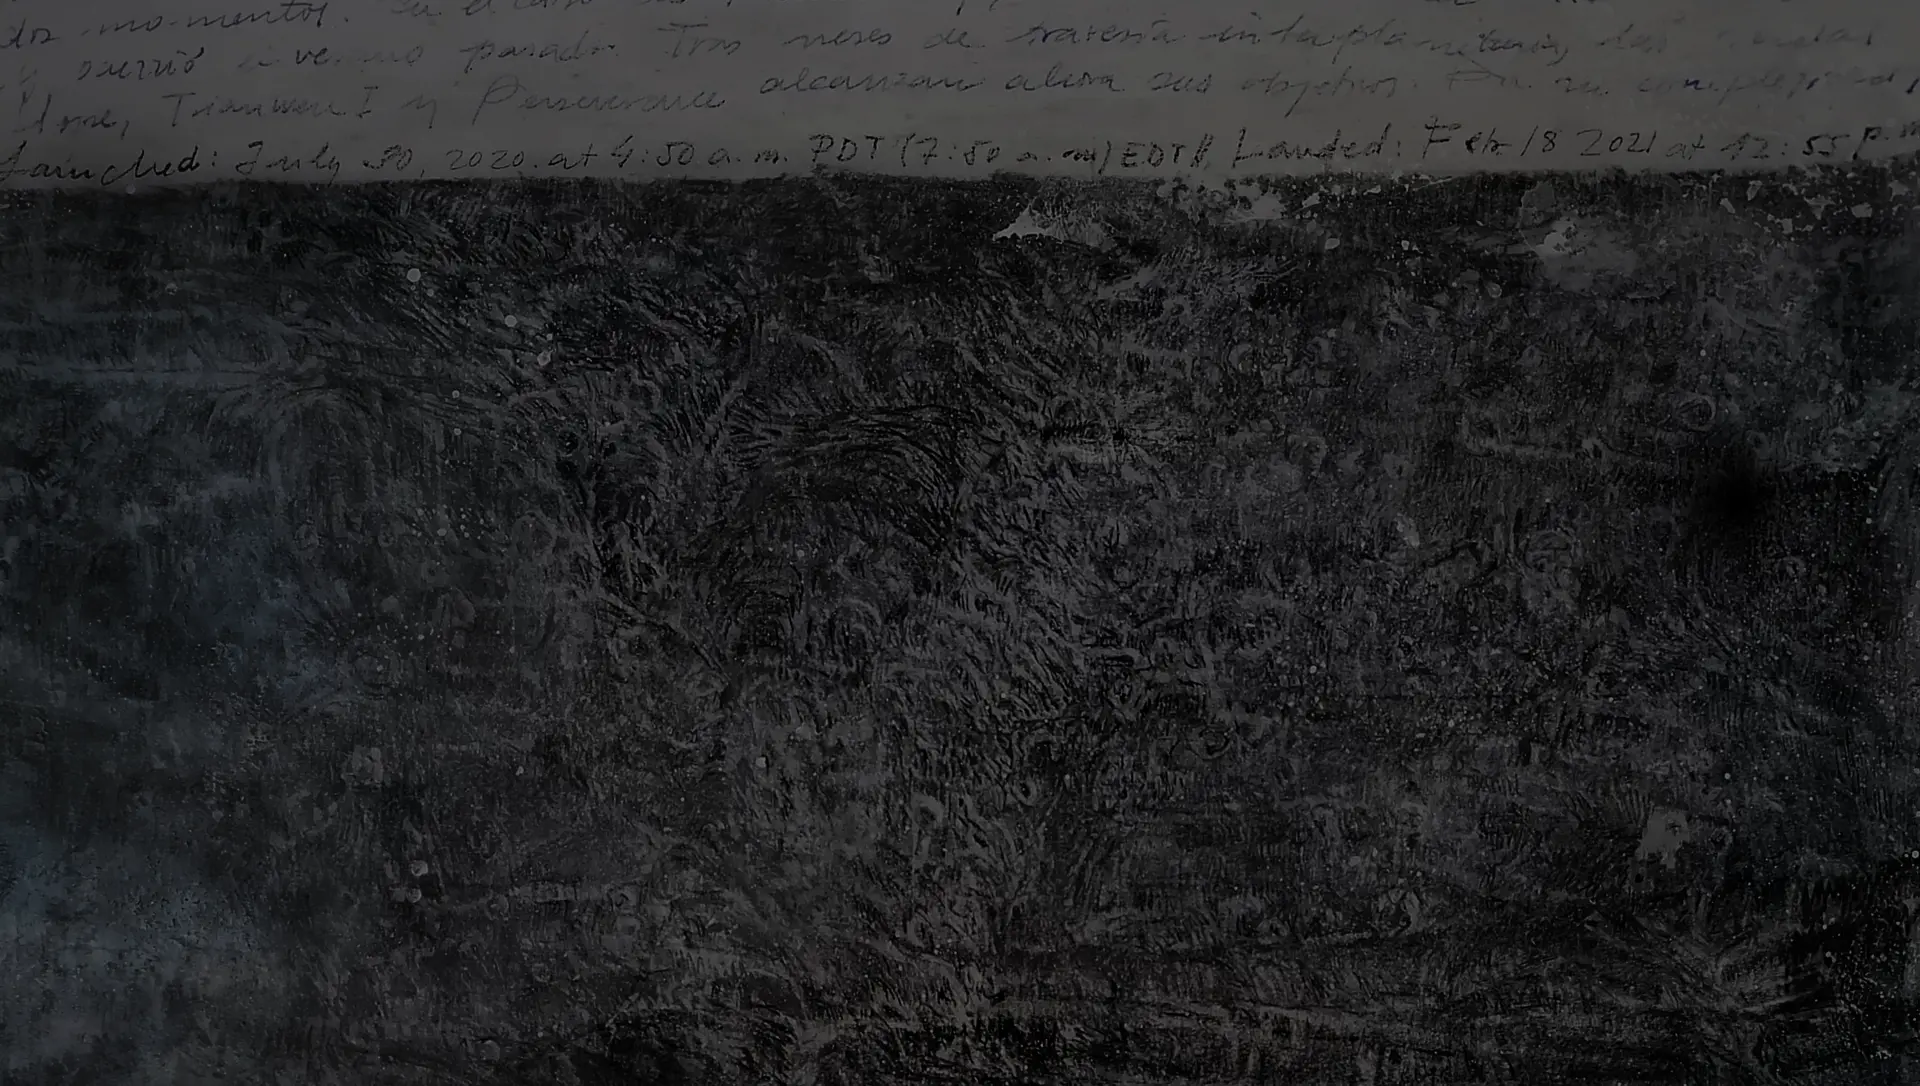 dos momentos. En el caso
y ocurrió el verano pasado. Tras meses de travesía interplanetaria, las sondas
Hope, Tianwen I y Perseverance alcanzan ahora sus objetivos. En su
Launched: July 30, 2020. at 4:50 a.m. PDT (7:50 a.m) EDT // Landed: Feb 18 2021 at 12:55 p.m